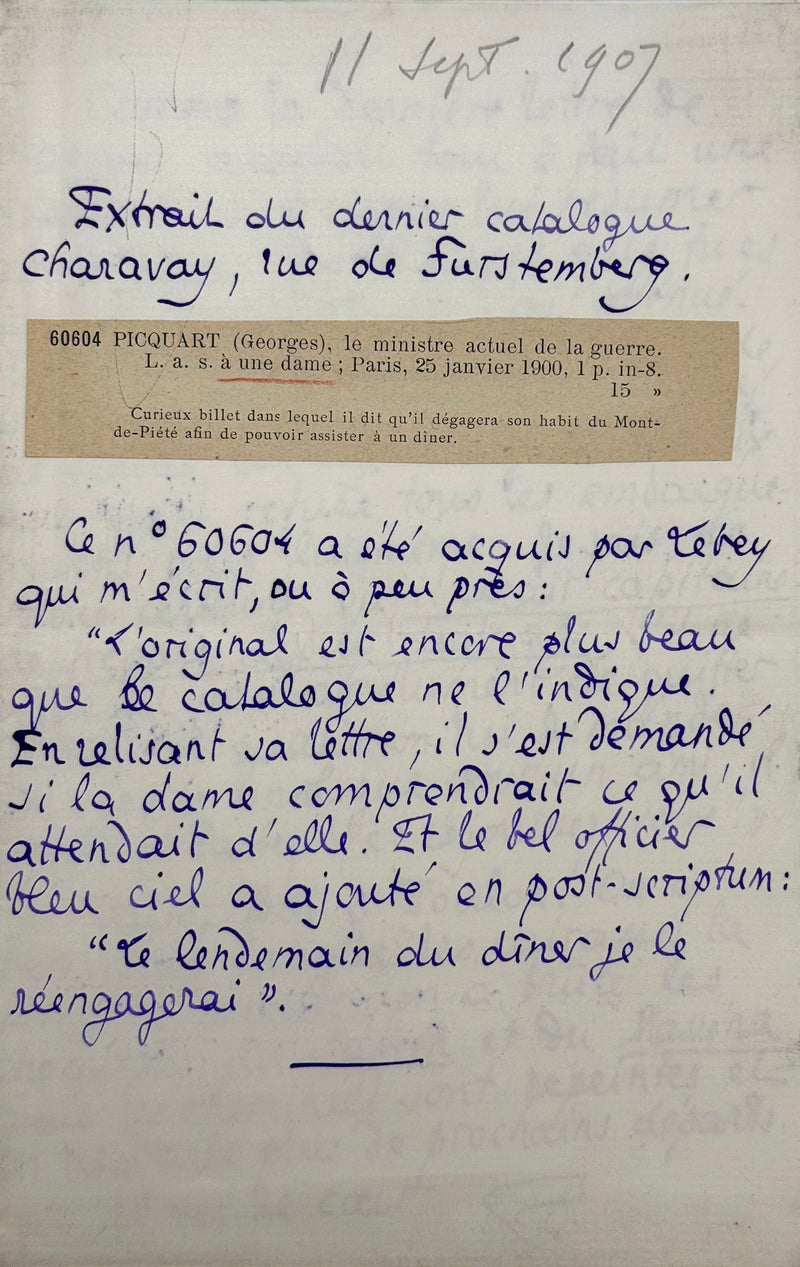 11 Sept. 1907
Extrait du dernier catalogue
Charavay, rue de Furstemberg.
60604 PICQUART (Georges), le ministre actuel de la guerre.
L. a. s. à une dame ; Paris, 25 janvier 1900, 1 p. in-8.
15 »
Curieux billet dans lequel il dit qu'il dégagera son habit du Mont-
de-Piété afin de pouvoir assister à un dîner.
Ce n° 60604 a été acquis par Lebey
qui m'écrit, ou à peu près :
“L'original est encore plus beau
que le catalogue ne l'indique.
En relisant sa lettre, il s'est demandé
si la dame comprendrait ce qu'il
attendait d'elle. Et le bel officier
bleu ciel a ajouté en post-scriptum :
“Le lendemain du dîner je le
réengagerai”.